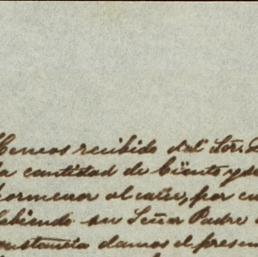 Hemos recibido del Sor.
la cantidad de
pormenor al caér, por
habiendo su Señor Padre
constancia damos el presen